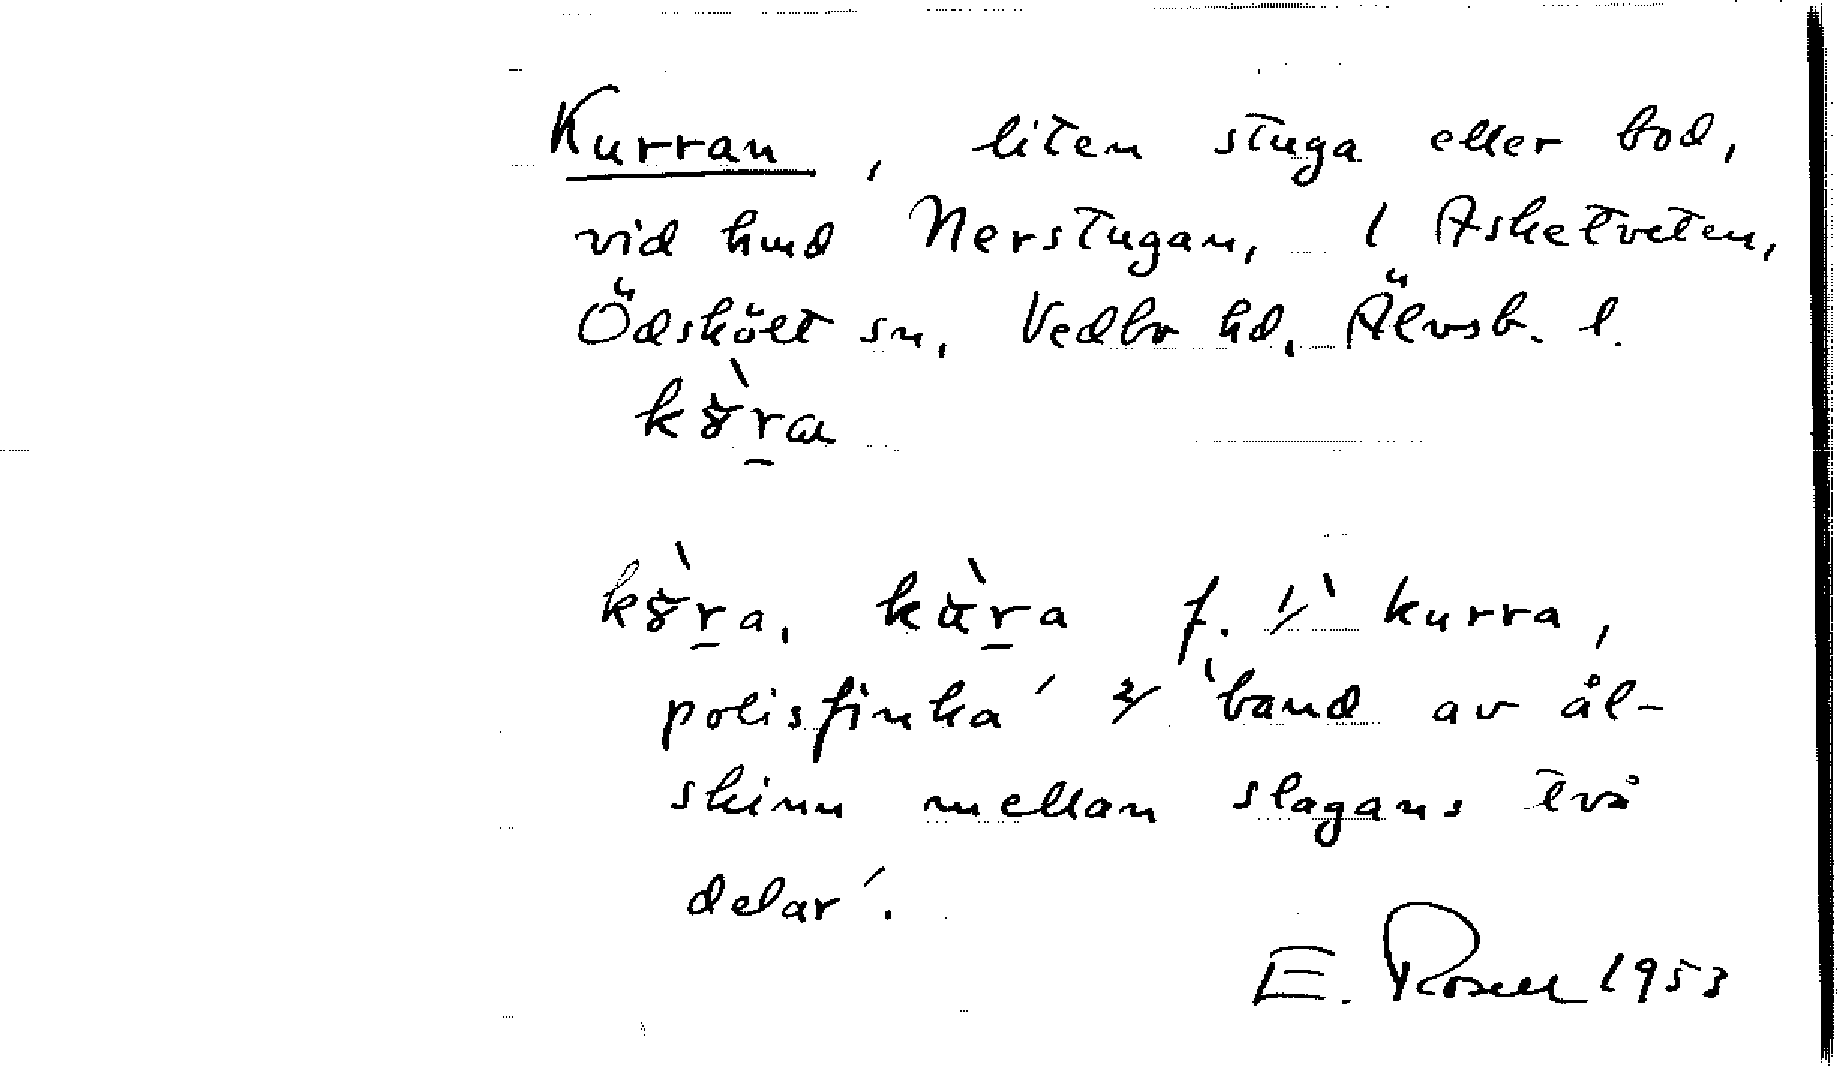 Kurran, liten stuga eller bod,
vid hmd Nerstugan, 1 Asketveten,
Ödskölt sn, Vedbo hd, Älvsb. l.
kŏ̀r̠a
kŏ̀r̠a, kùr̠a f. 1/ ‵kurra,
polisfinka′ 2/ ‵band av ål-
skinn mellan slagans två
delar′.
E. Rosell 1953